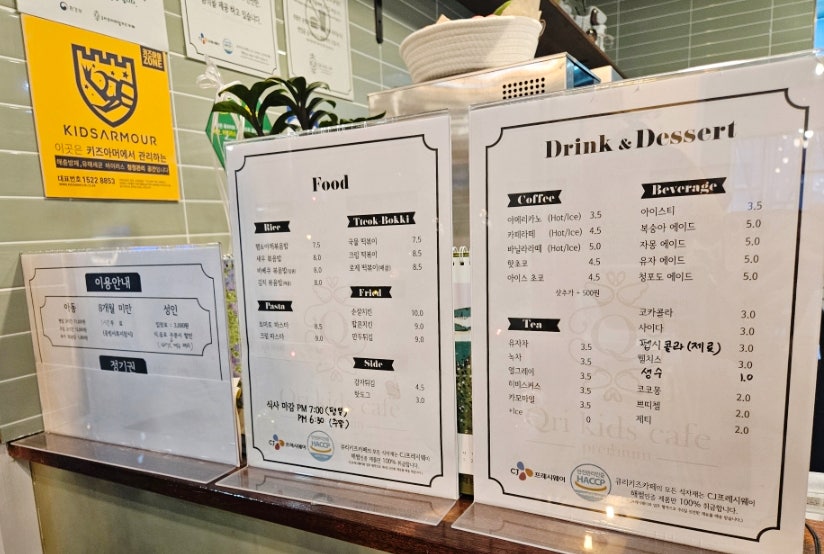 환경부
CJ 프레시웨이
HACCP
키즈아머 ZONE
KIDSARMOUR
이곳은 키즈아머에서 관리하는
대표번호 1522 8853
이용안내
아동
8개월 미만
성인
정기권
Food
Rice
새우 볶음밥 8.0
김치 볶음밥 8.0
7.5
6.0
Pasta
토마토 파스타 8.5
크림 파스타 9.0
Tteok-Bokki
국물 떡볶이 7.5
크림 떡볶이 8.5
로제 떡볶이(매콤) 8.5
Fried
순살치킨 10.0
팝콘치킨 9.0
만두튀김 9.0
Side
감자튀김 4.5
핫도그 3.0
식사 마감 PM 7:00 (평일)
PM 6:30 (주말)
CJ 프레시웨이
HACCP
큐리키즈카페의 모든 식자재는 CJ프레시웨이
해썹인증 제품만 100% 취급합니다.
Drink & Dessert
Coffee
아메리카노 (Hot/Ice) 3.5
카페라떼 (Hot/Ice) 4.5
바닐라라떼 (Hot/Ice) 5.0
핫초코 4.5
아이스 초코 4.5
샷추가 + 500원
Tea
유자차 3.5
녹차 3.5
얼그레이 3.5
히비스커스 3.5
카모마일 3.5
+Ice 0
Beverage
아이스티 3.5
복숭아 에이드 5.0
자몽 에이드 5.0
유자 에이드 5.0
청포도 에이드 5.0
코카콜라 3.0
사이다 3.0
펩시 콜라 (제로) 3.0
웰치스 3.0
생수 1.0
코코몽 2.0
쁘띠첼 2.0
제티 2.0
Qri kids cafe
premium
CJ 프레시웨이
안전관리인증
HACCP
큐리키즈카페의 모든 식자재는 CJ프레시웨이
해썹인증 제품만 100% 취급합니다.